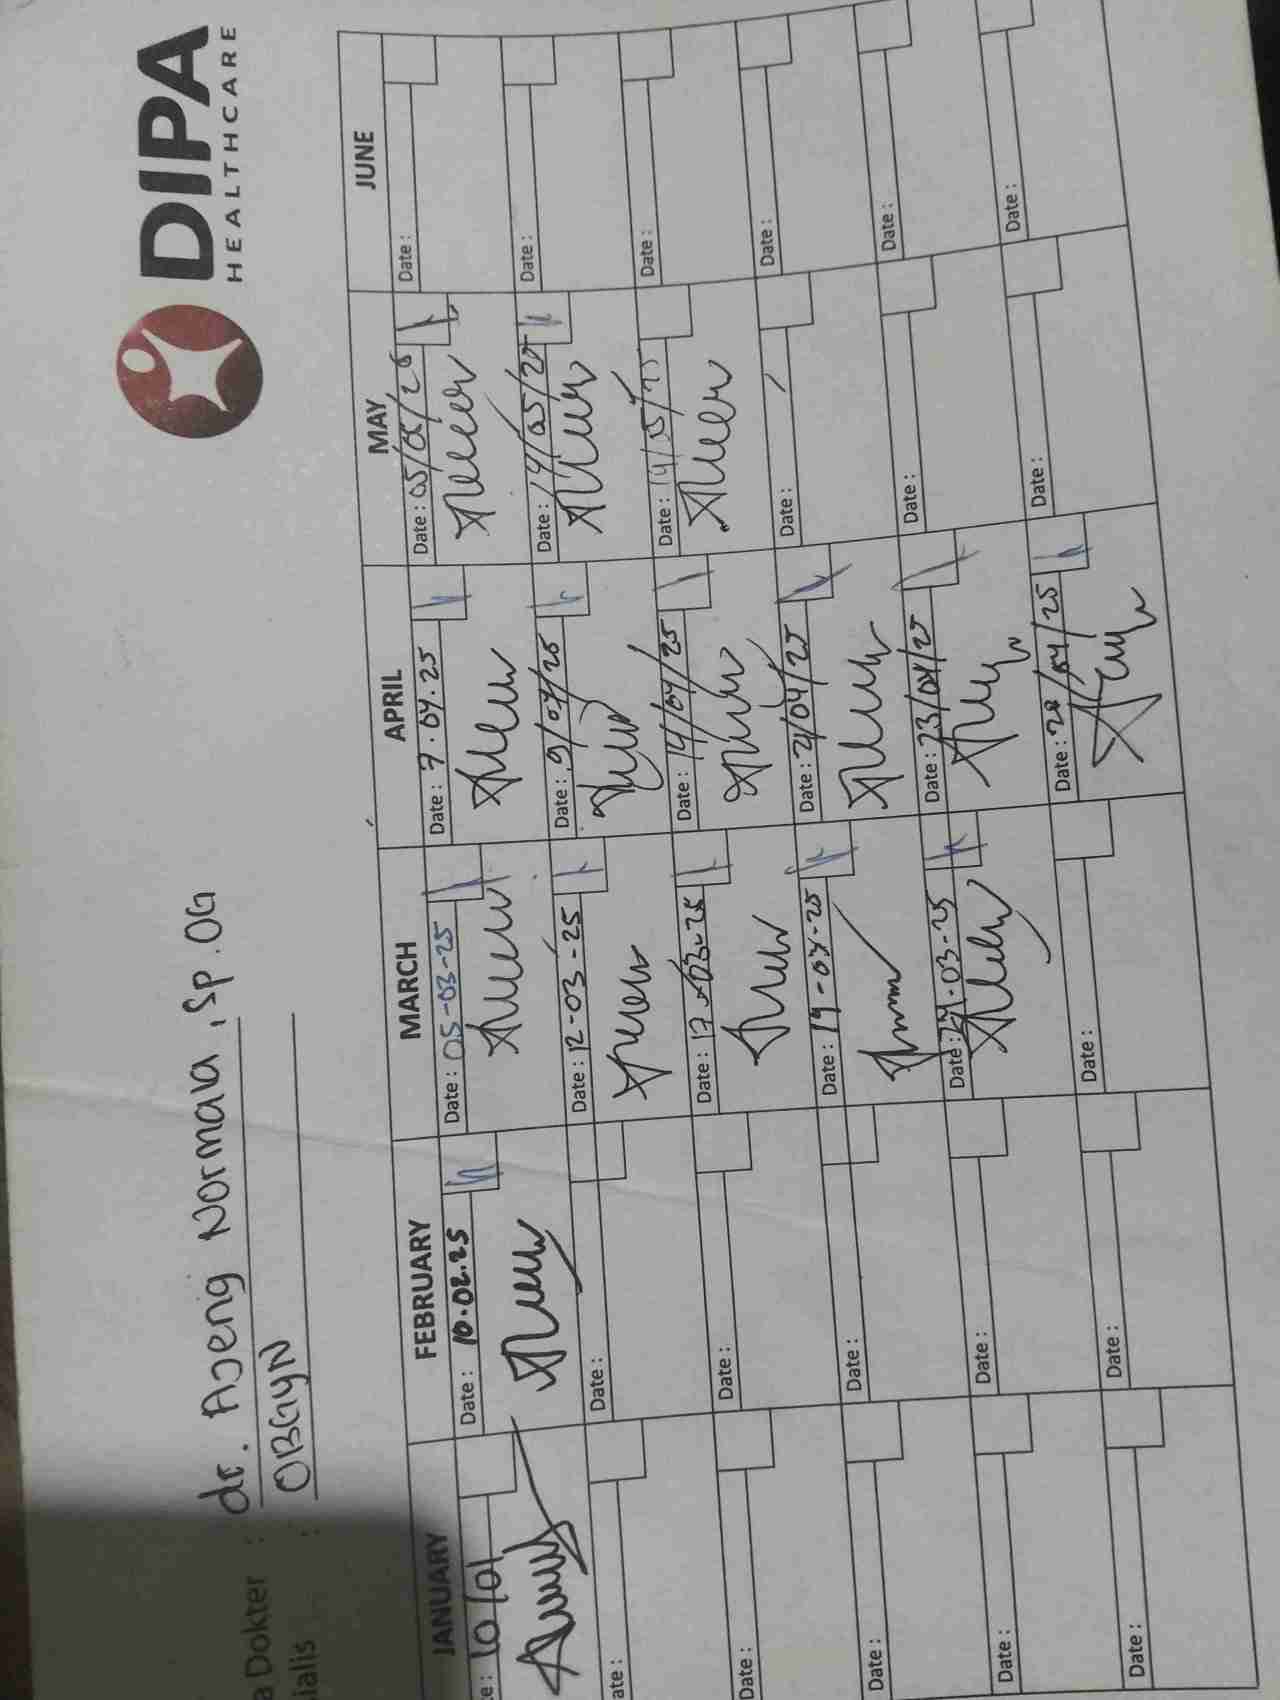 DIPA
HEALTHCARE
a Dokter : dr. Ajeng Normala, Sp.OG
ialis : OBGYN
JANUARY FEBRUARY MARCH APRIL MAY JUNE
e : 10/01 Date : 10.02.25 Date : 05-03-25 Date : 7.04.25 Date : 05/05/25 Date :
ate : Date : Date : 12-03-25 Date : 9/04/25 Date : 14/05/25 Date :
Date : Date : Date : 17-03-25 Date : 14/04/25 Date : 19/05/25 Date :
Date : Date : Date : 19-03-25 Date : 21/04/25 Date : Date :
Date : Date : Date : 24-03-25 Date : 23/04/25 Date : Date :
Date : Date : Date : Date : 28/04/25 Date : Date :